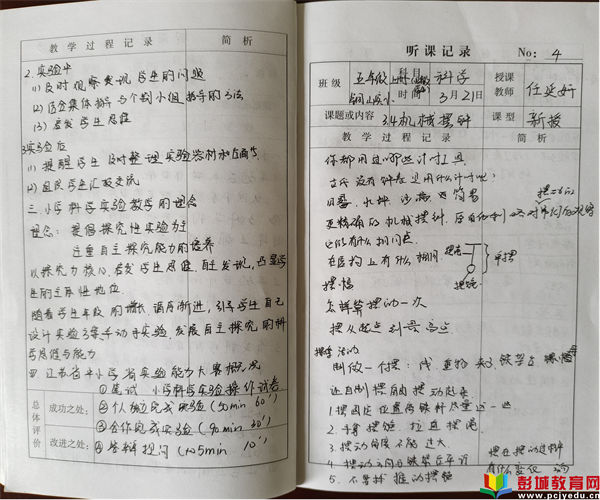 教学过程记录 简析
2.实验中
(1)及时观察发现学生的问题
(2)结合集体指导与个别小组指导的方法
(3)启发学生思维
3实验后
(1)提醒学生及时整理实验器材和
(2)组织学生汇报交流
三、小学科学实验教学的理念
理念:提倡探究性实验为主
注重自主探究能力的培养
以探究为核心,启发学生思维,自主发现,凸显学
生的主体性地位
随着学生年级的增长,循序渐进,引导学生自己
设计实验方案手动手实验,发展自主探究的科
学思维与能力
四 江苏省中小学 实验能力大赛概况
①笔试 小学科学实验操作试卷
总体评价 成功之处: ②个人独立完成实验(50min 60')
③合作完成实验(90min 30')
改进之处: ④答辩提问(5min 10')
听课记录 No: 4
班级 五年级 科目 科学 授课教师 任
时间 3月21日
课题或内容 3.4机械摆钟 课型 新授
教学过程记录 简析
你都用过哪些计时工具
古代没有钟表是用什么计时呢?
日晷,水钟,沙漏,
更精确的机械摆钟,
它们有什么相同点
在结构上有什么相同
摆绳
单摆
摆锤
摆·幅
怎样算摆动一次
摆从起点到最高点
制做一个摆:线 重物 铁架台
让自制摆自由摆动起来
1摆固定位置
2.手拿摆锤 拉直摆绳
3.摆动角度不能过大
4.摆动方向与铁架台平行
5.不要推摆锤
摆在摆动过程中
有什么变化
彭城教育网
www.pcjyedu.cn